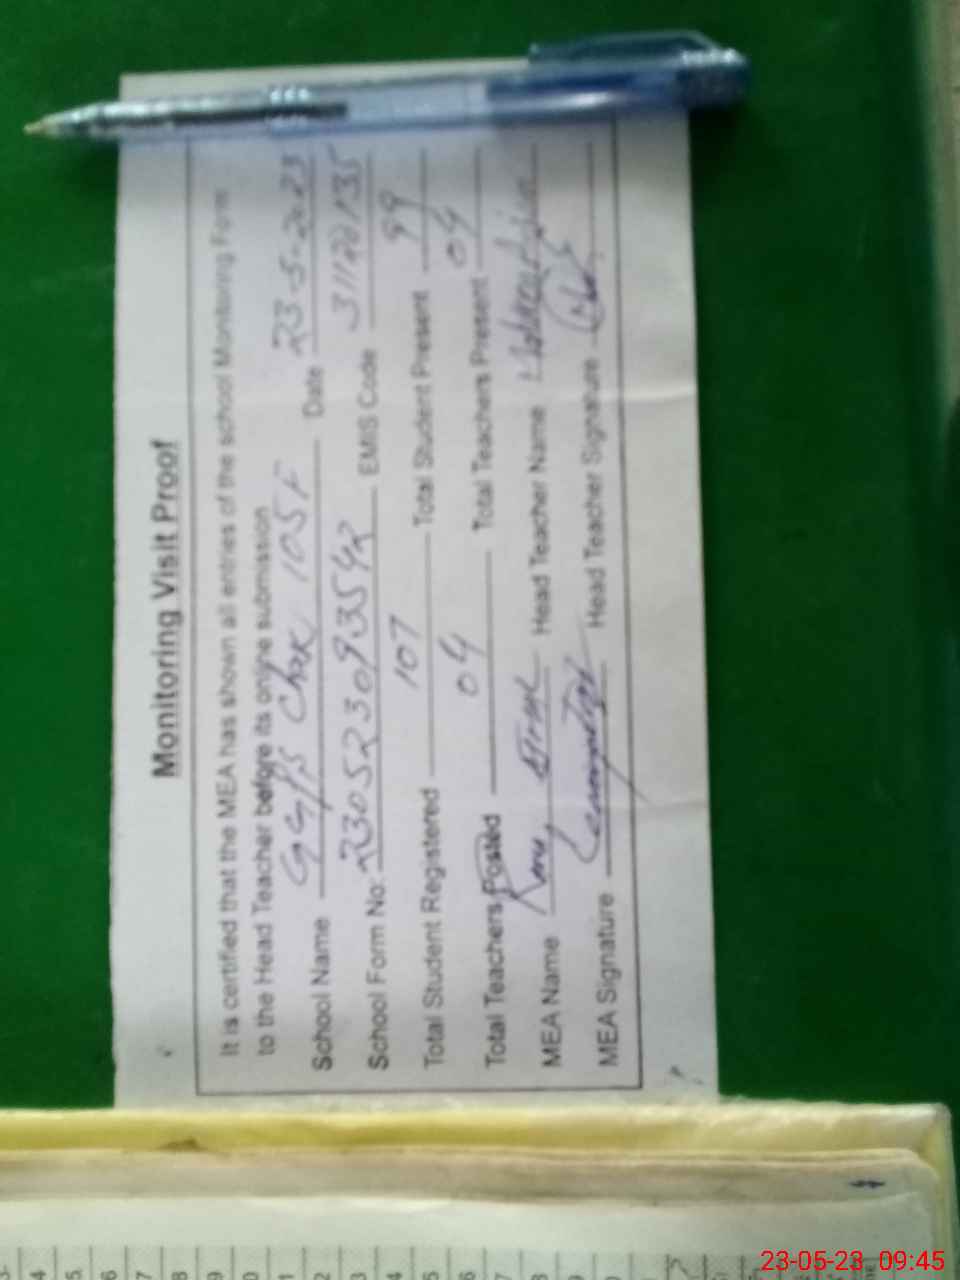 Monitoring Visit Proof
It is certified that the MEA has shown all entries of the school Monitoring Form
to the Head Teacher before its online submission
School Name GGPS Chak 105 F Date 23-5-2023
School Form No: 23052309354 EMIS Code 31120135
Total Student Registered 107 Total Student Present 99
Total Teachers Posted 04 Total Teachers Present 04
MEA Name Head Teacher Name
MEA Signature Head Teacher Signature
23-05-23 09:45